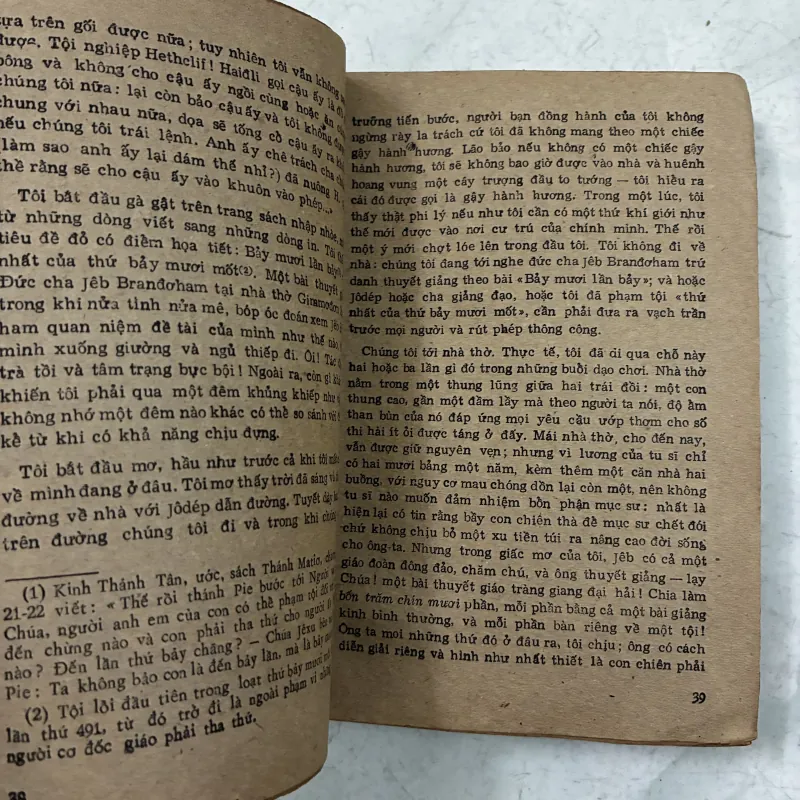 tựa trên gối được nữa; tuy nhiên tôi vẫn không
được. Tội nghiệp Hethclif! Haiđli gọi cậu ấy là đồ
bông và không cho cậu ấy ngồi cùng hoặc ăn
chúng tôi nữa: lại còn bảo cậu ấy và tôi không được
chung với nhau nữa, dọa sẽ tống cổ cậu ấy ra
nếu chúng tôi trái lệnh. Anh ấy chê trách cha
(làm sao anh ấy lại dám thế nhỉ?) đã nuông H.
thề rằng sẽ cho cậu ấy vào khuôn vào phép...
Tôi bắt đầu gà gật trên trang sách nhập
từ những dòng viết sang những dòng in. Tôi
tiêu đề đỏ có điểm họa tiết: Bảy mươi lần bảy
nhất của thứ bảy mươi mốt(2). Một bài thuyết
Đức cha Jêb Branđơham tại nhà thờ
trong khi nửa tỉnh nửa mê, bóp óc đoán xem
ham quan niệm đề tài của mình như thế nào
mình xuống giường và ngủ thiếp đi. Ôi! Tác
trà tồi và tâm trạng bực bội! Ngoài ra, còn gì
khiến tôi phải qua một đêm khủng khiếp như
không nhớ một đêm nào khác có thể so sánh với
kể từ khi có khả năng chịu đựng.
Tôi bắt đầu mơ, hầu như trước cả khi tôi
về mình đang ở đâu. Tôi mơ thấy trời đã sáng và
đường về nhà với Jôdép dẫn đường. Tuyết dày
trên đường chúng tôi đi và trong khi chúng
(1) Kinh Thánh Tân, ước, sách Thánh Matiơ,
21-22 viết: «Thế rồi thánh Pie bước tới Người
Chúa, người anh em của con có thể phạm tội đối
đến chừng nào và con phải tha thứ cho người
nào? Đến lần thứ bảy chăng? — Chúa Jêxu
Pie: Ta không bảo con là đến bảy lần, mà là bảy mươi
(2) Tội lỗi đầu tiên trong loạt thứ bảy mươi mốt
lần thứ 491, từ đó trở đi là ngoài phạm vi
người cơ đốc giáo phải tha thứ.
trưỡng tiến bước, người bạn đồng hành của tôi không
ngừng rày la trách cứ tôi đã không mang theo một chiếc
gậy hành hương. Lão bảo nếu không có một chiếc gậy
hành hương, tôi sẽ không bao giờ được vào nhà và huênh
hoang vung một cây trượng đầu to tướng — tôi hiểu ra
cái đó được gọi là gậy hành hương. Trong một lúc, tôi
thấy thật phi lý nếu như tôi cần có một thứ khí giới như
thế mới được vào nơi cư trú của chính mình. Thế rồi
một ý mới chợt lóe lên trong đầu tôi. Tôi không đi về
nhà: chúng tôi đang tới nghe đức cha Jêb Branđơham trứ
danh thuyết giảng theo bài «Bảy mươi lần bảy»; và hoặc
Jôdép hoặc cha giảng đạo, hoặc tôi đã phạm tội «thứ
nhất của thứ bảy mươi mốt», cần phải đưa ra vạch trần
trước mọi người và rút phép thông công.
Chúng tôi tới nhà thờ. Thực tế, tôi đã đi qua chỗ này
hai hoặc ba lần gì đó trong những buổi dạo chơi. Nhà thờ
nằm trong một thung lũng giữa hai trái đồi: một con
thung cao, gần một đầm lầy mà theo người ta nói, độ ẩm
than bùn của nó đáp ứng mọi yêu cầu ướp thơm cho số
thi hài ít ỏi được táng ở đấy. Mái nhà thờ, cho đến nay,
vẫn được giữ nguyên vẹn; nhưng vì lương của tu sĩ chỉ
có hai mươi bảng một năm, kèm thêm một căn nhà hai
buồng, với nguy cơ mau chóng dồn lại còn một, nên không
tu sĩ nào muốn đảm nhiệm bổn phận mục sư: nhất là
hiện lại có tin rằng bầy con chiên thà để mục sư chết đói
chứ không chịu bỏ một xu tiền túi ra nâng cao đời sống
cho ông ta. Nhưng trong giấc mơ của tôi, Jêb có cả một
giáo đoàn đông đảo, chăm chú, và ông thuyết giảng — lạy
Chúa! một bài thuyết giáo tràng giang đại hải! Chia làm
bốn trăm chín mươi phần, mỗi phần bằng cả một bài giảng
kinh bình thường, và mỗi phần bàn riêng về một tội!
Ông ta moi những thứ đó ở đâu ra, tôi chịu; ông có cách
diễn giải riêng và hình như nhất thiết là con chiên phải
39